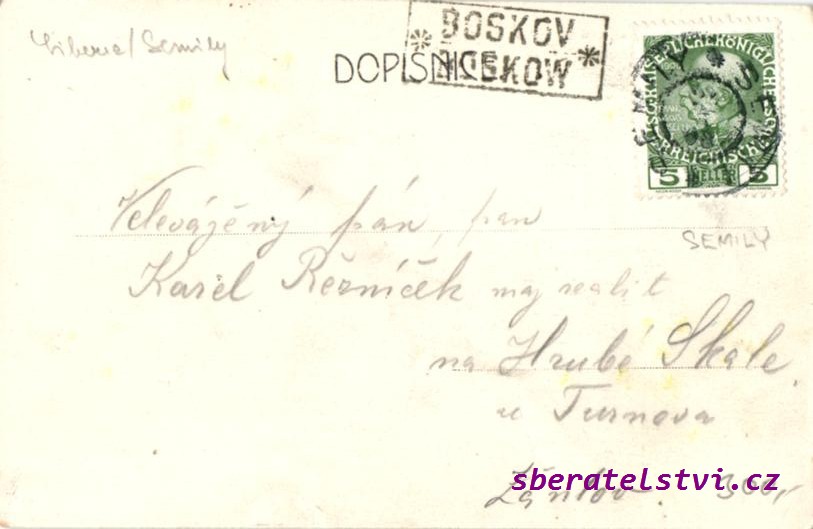 Liberec/Semily
BOSKOV
BOSKOW
DOPISNICE
KAISERLICHE KÖNIGLICHE ÖSTERREICHISCHE
5 HELLER 5
SEMILY
SEMILY
Velevážený pán, pan
Karel Řezníček maj realit
na Hrubé Skale,
u Turnova
300,-
sberatelstvi.cz